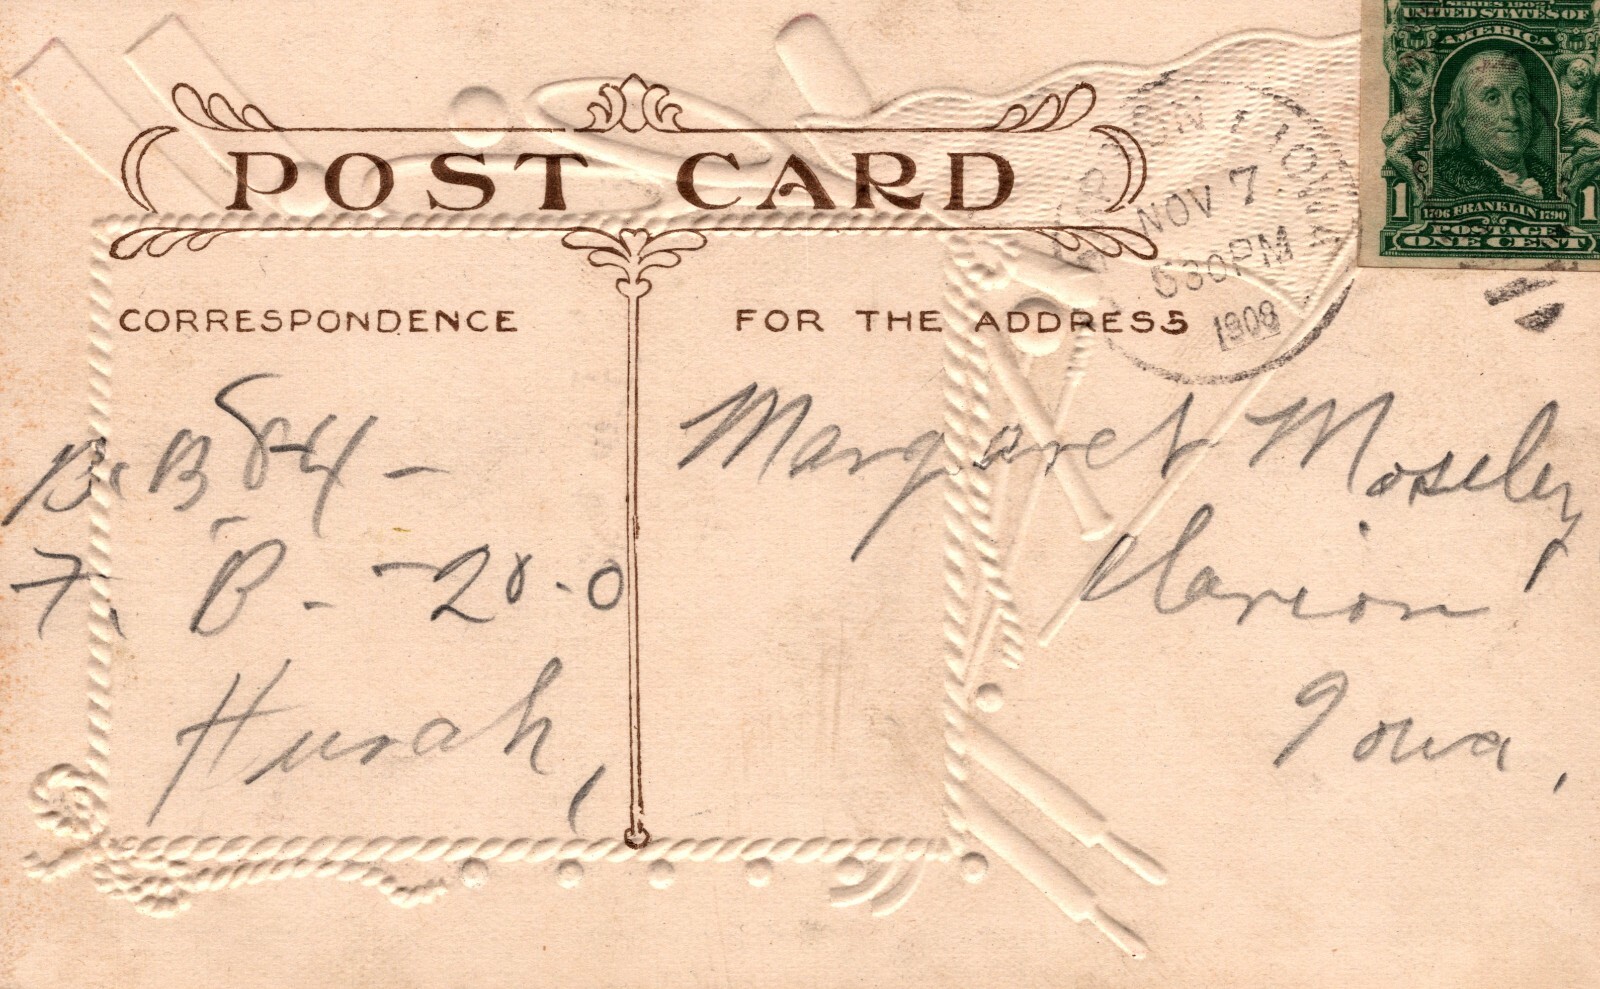 SERIES 1902
UNITED STATES OF
AMERICA
1 1
1706 FRANKLIN 1790
POSTAGE
ONE CENT
POST CARD
NOV 7
530PM
1908
IOWA
CORRESPONDENCE
FOR THE ADDRESS
B. B
F. B - -28-0
Hurah,
Margaret Moseley,
Clarion
Iowa,